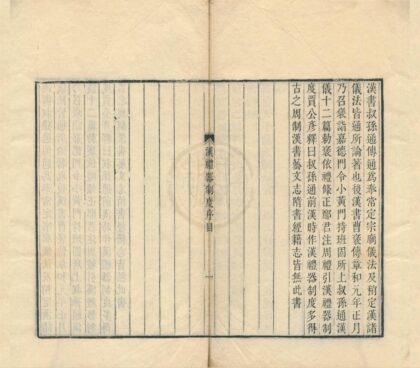 漢書叔孫通傳通爲奉常定宗廟儀法及稍定漢諸
儀法皆通所論著也後漢書曹褒傳章和元年正月
乃召褒詣嘉德門令小黃門持班固所上叔孫通漢
儀十二篇勅褒依禮修正鄭君注周禮引漢禮器制
度賈公彥釋曰叔孫通前漢時作漢禮器制度多得
古之周制漢書藝文志隋書經籍志皆無此書
漢禮器制度序目
一